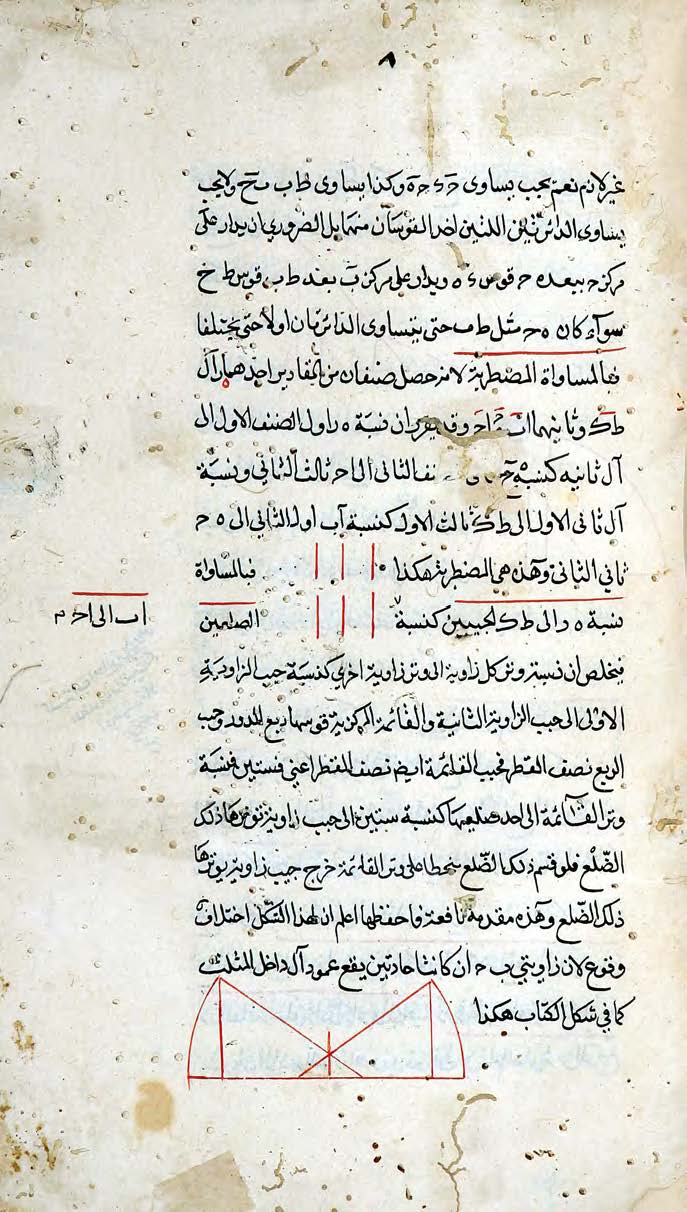 ٨
غير لازم نعم يجب يساوى حء حه وكذا يساوى طب بح ولا يجب
يساوى الدائرتين اللتين احد القوسان منهما بل الضرورى ان يدار على
مركز ح ببعد ه ح قوس ء ه ويدار على مركز ب ببعد طب قوس ط خ
سوآء كان ه ح مثل طب حتى يتساوى الدائرتان اولا حتى يختلفا
فبالمساواة المضطربة لانه حصل صنفان من المقادير احدهما ر آل
طك وثانيهما اب اح وقد ان نسبة ه ر اول الصنف الاول الى
آل ثانيه كنسبة الثانى الى اح ثالث الثانى ونسبة
آل ثانى الاول الى طك ثالث الاول كنسبة آب اول الثانى الى ه ح
ثانى الثانى وهذه هى المضطربة هكذا فبالمساواة
نسبة ه ر الى طك الجيبين كنسبة الضلعين
اب الى اح م
فيخلص ان نسبة وتر كل زاوية الى وتر زاوية اخرى كنسبة جيب الزاوية
الاولى الى جيب الزاوية الثانية والقائمة المركزية قوسها ربع الدور وجيب
الربع نصف القطر فجيب القائمة ايضا نصف القطر اعنى ستين فنسبة
وتر القائمة الى احد ضلعيها كنسبة ستين الى جيب زاوية توترها ذلك
الضلع فلو قسم ذلك الضلع منحطا على وتر القائمة خرج جيب زاوية يوترها
ذلك الضلع وهذه مقدمة نافعة فاحفظها اعلم ان لهذا الشكل اختلاف
وقوع لان زاويتى ب ح ان كانتا حادتين يقع عمود آل داخل المثلث
كما فى شكل الكتاب هكذا